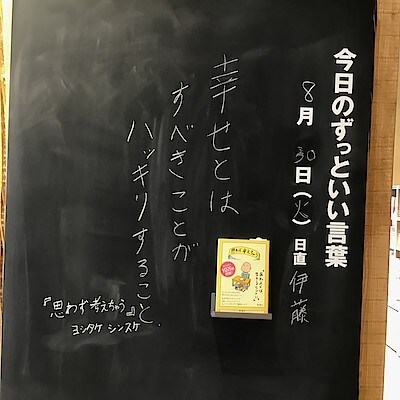 今日のずっといい言葉
8月30日(火)日直 伊藤
幸せとは
すべきことが
ハッキリすること。
『思わず考えちゃう』
ヨシタケ シンスケ